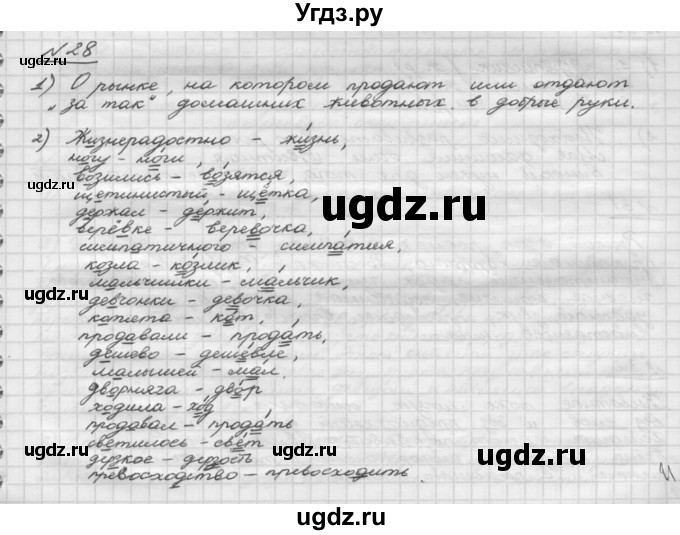 Угдз.ру
№28
1) О рынке, на котором продают или отдают
„за так" домашних животных в добрые руки.
2) Жизнерадостно - жизнь,
ногу - ноги,
возились - возятся,
щетинистый - щётка,
держал - держит,
верёвке - веревочка,
симпатичного - симпатия,
козла - козлик,
мальчишки - мальчик,
девчонки - девочка,
котята - кот,
продавали - продать,
дёшово - дешевле,
малышей - мал.
дворняга - двор
ходила - ход
продавал - продать
светилось - свет
дерзкое - дерзость
превосходство - превосходить.
ugdz.ru
ugdz.ru
ugdz.ru
ugdz.ru
ugdz.ru
ugdz.ru
ugdz.ru
ugdz.ru
ugdz.ru
ugdz.ru